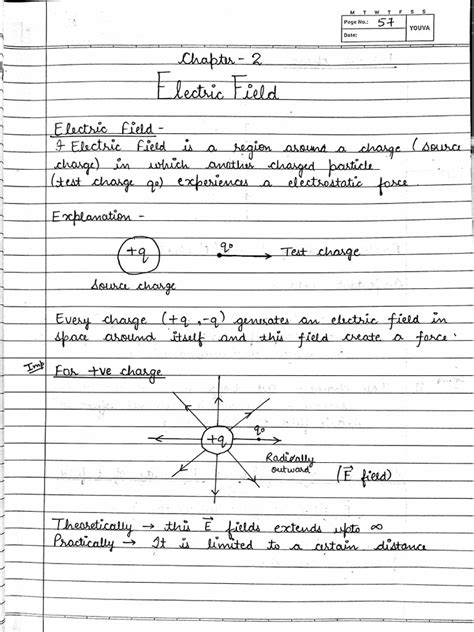 M T W T F S S
Page No.: 57
YOUVA
Date:
Chapter - 2
Electric Field
Electric Field -
Electric Field is a region around a charge (source
charge) in which another charged particle
(test charge q₀) experiences a electrostatic force.
Explanation -
+q q₀ → Test charge
source charge
Every charge (+q, -q) generates an electric field in
space around itself and this field create a force.
Imp For +ve charge
+q q₀
Radially
outward (E⃗ field)
Theoretically → this E⃗ fields extends upto ∞
Practically → It is limited to a certain distance